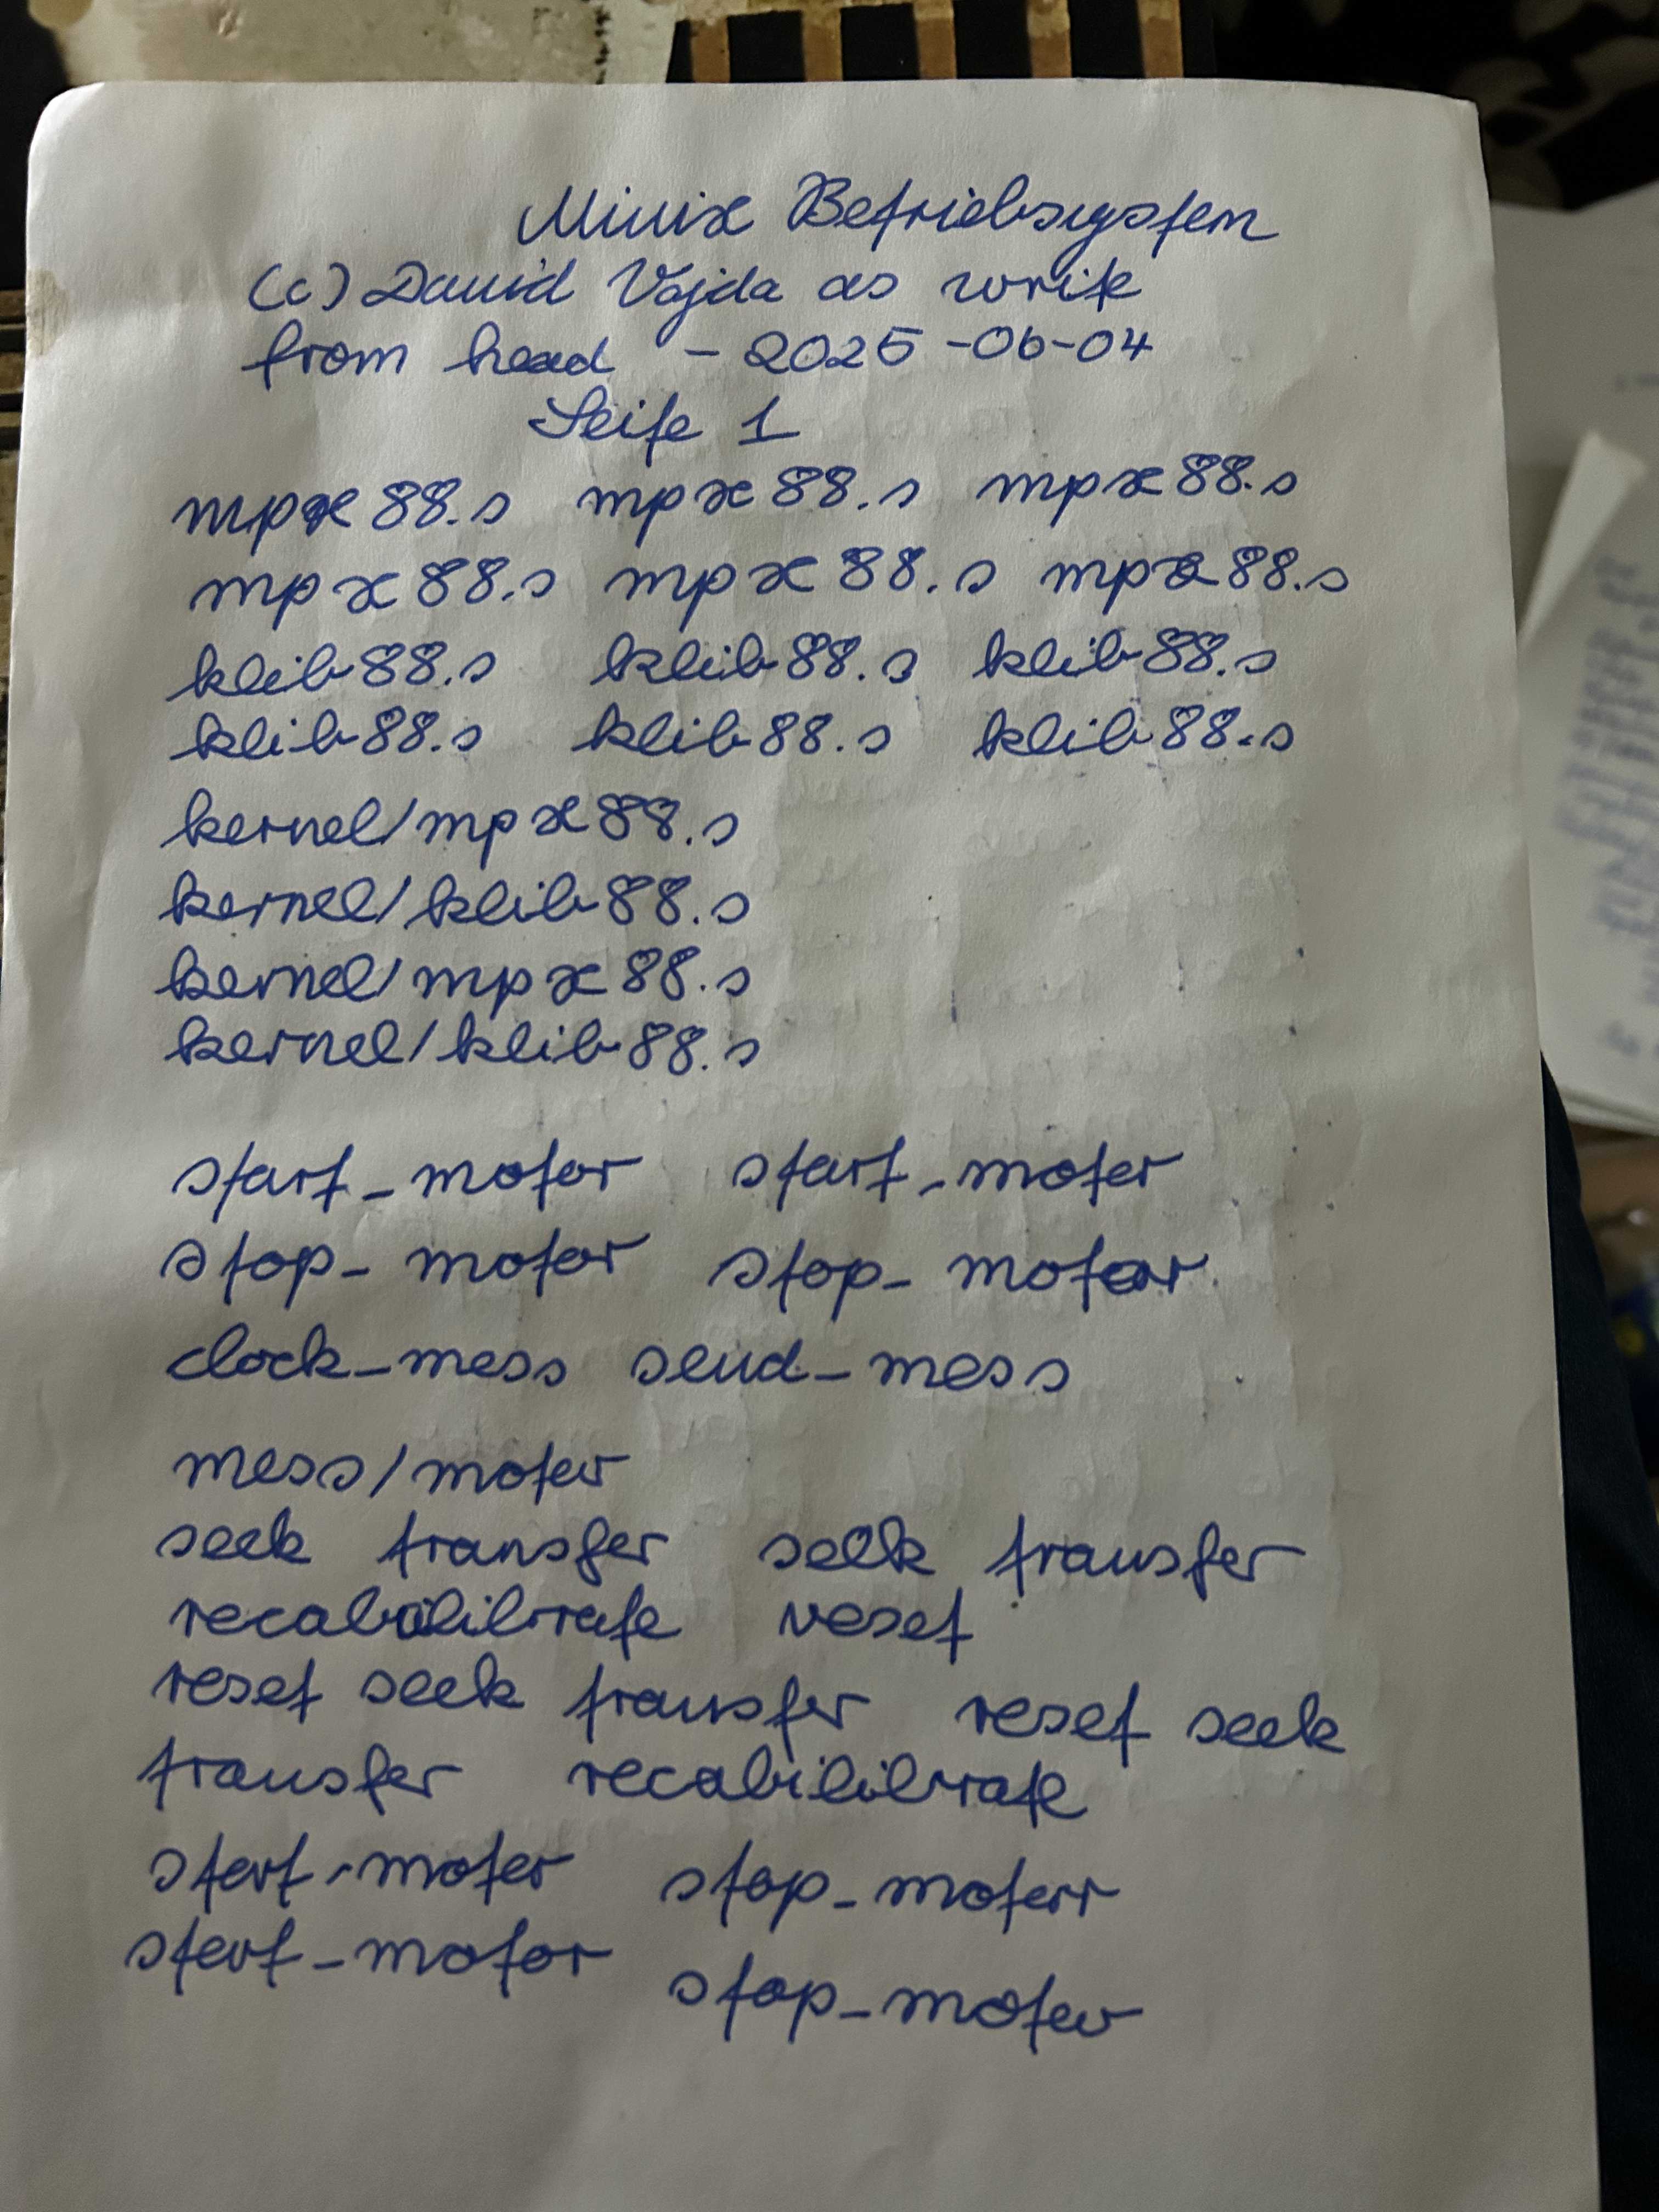 Minix Betriebsystem
(c) David Vajda as write
from head - 2025-06-04
Seite 1
mpx88.s mpx88.s mpx88.s
mpx88.s mpx88.s mpx88.s
klib88.s klib88.s klib88.s
klib88.s klib88.s klib88.s
kernel/mpx88.s
kernel/klib88.s
kernel/mpx88.s
kernel/klib88.s
start_motor start_motor
stop_motor stop_motor
clock_mess send_mess
mess/motor
seek transfer seek transfer
reset
reset seek transfer reset seek
transfer recabilibrate
start_motor stop_motorr
start_motor
stop_motor